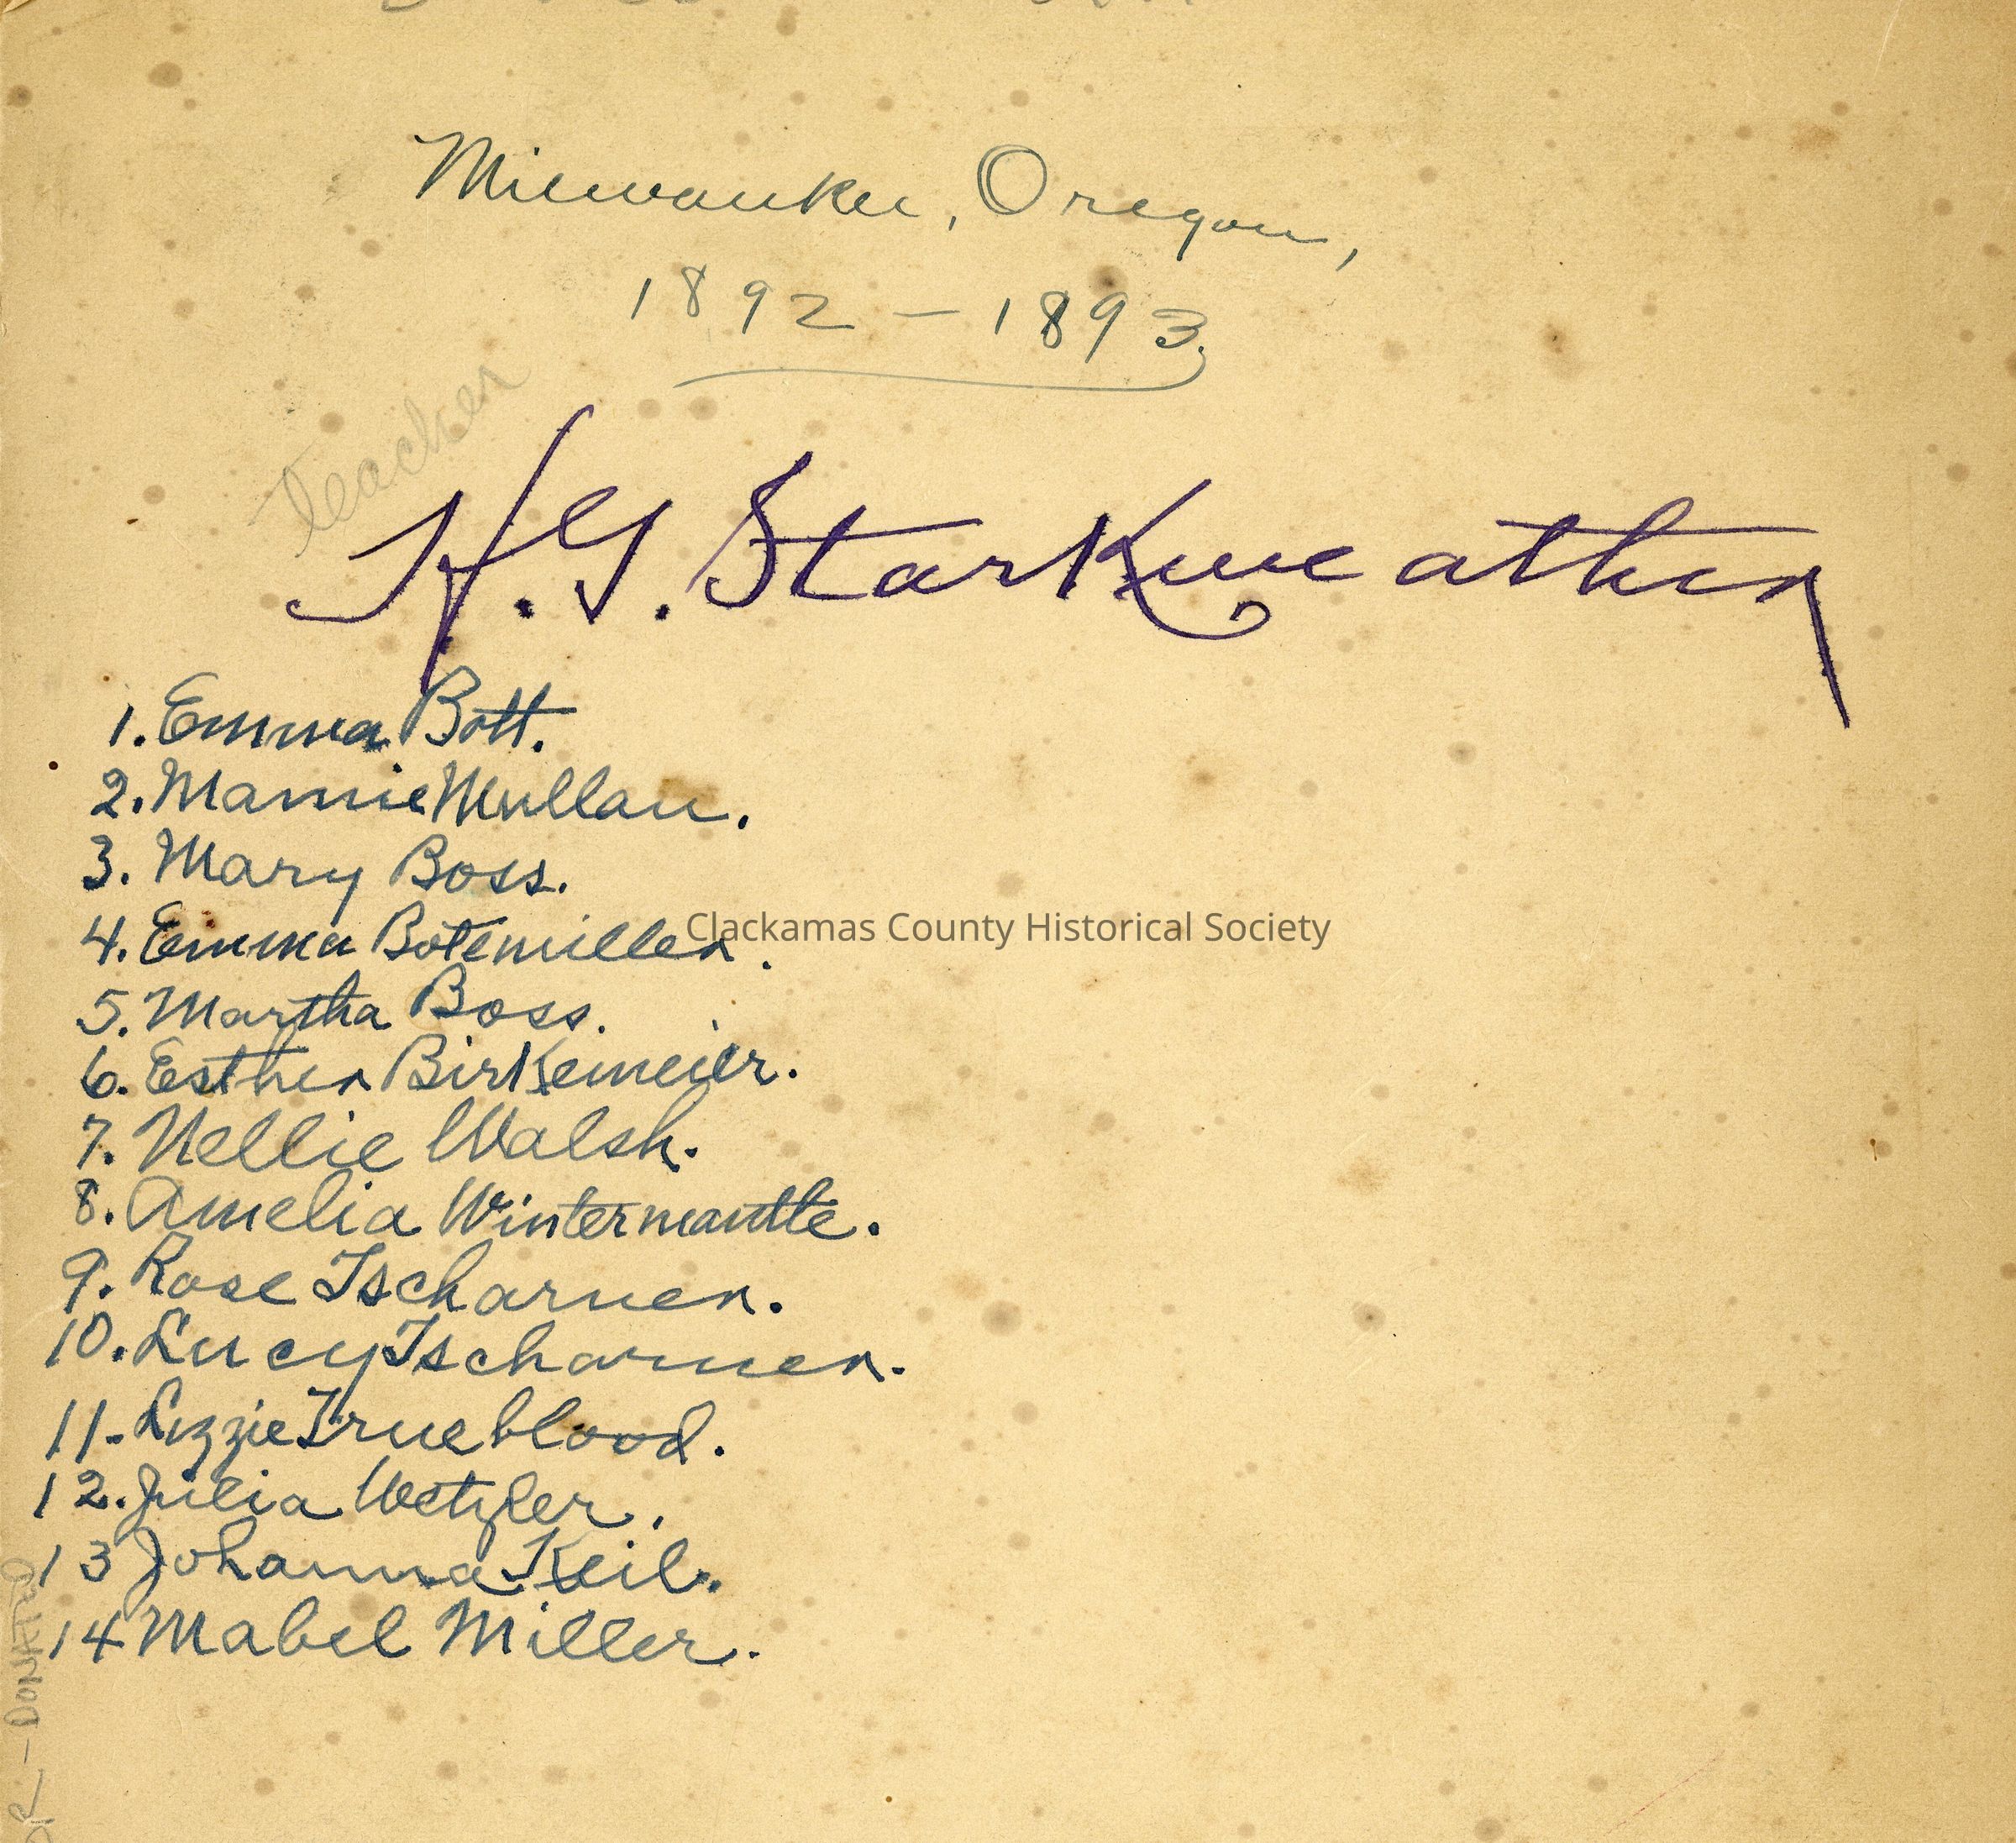 Milwaukee, Oregon,
1892 - 1893.
teacher
H.G. Starkweather
1. Emma Bott.
2. Mamie Mullan.
3. Mary Boss.
4. Emma Botemiller.
Clackamas County Historical Society
5. Martha Boss.
6. Esther Birkemeier.
7. Nellie Walsh.
8. Amelia Wintermantle.
9. Rose Tscharner.
10. Lucy Tscharner.
11- Lizzie Trueblood.
12. Julia Wetzler.
13 Johanna Keil.
14 Mabel Miller.
- DONATED